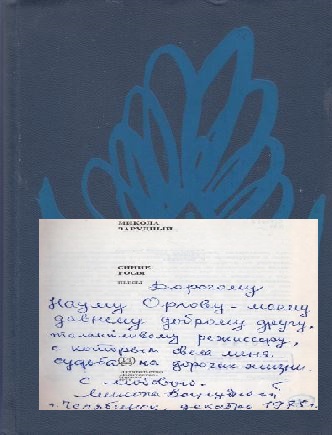 МИКОЛА
ЗАРУДНЫЙ
СИНИЕ
РОСЫ
ПЬЕСЫ
Дорогому
Науму Орлову - моему
давнему доброму другу,
талантливому режиссеру,
с которым свела меня
судьба на дорогах жизни.
С любовью.
Микола Зарудный
г. Челябинск, декабрь